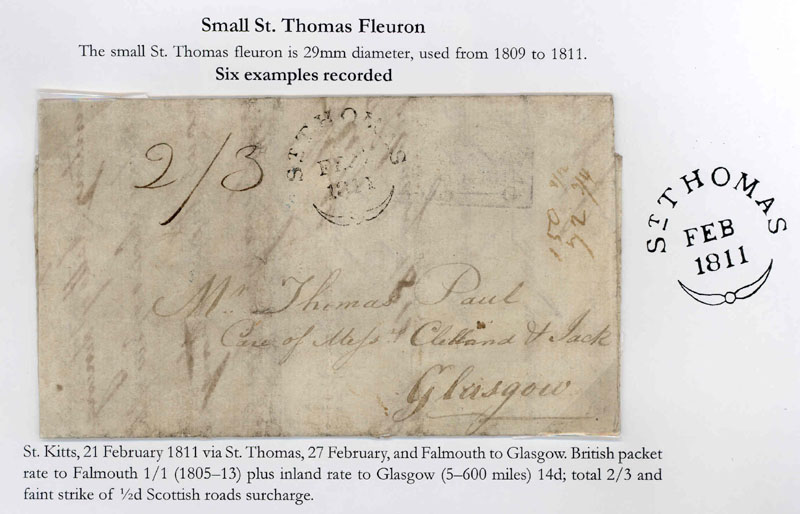 Small St. Thomas Fleuron
The small St. Thomas fleuron is 29mm diameter, used from 1809 to 1811.
Six examples recorded
2/3
ST THOMAS
1811
Mr. Thomas Paul
Care of Messrs Clelland & Jack
Glasgow
ST THOMAS
FEB
1811
St. Kitts, 21 February 1811 via St. Thomas, 27 February, and Falmouth to Glasgow. British packet
rate to Falmouth 1/1 (1805–13) plus inland rate to Glasgow (5–600 miles) 14d; total 2/3 and
faint strike of ½d Scottish roads surcharge.